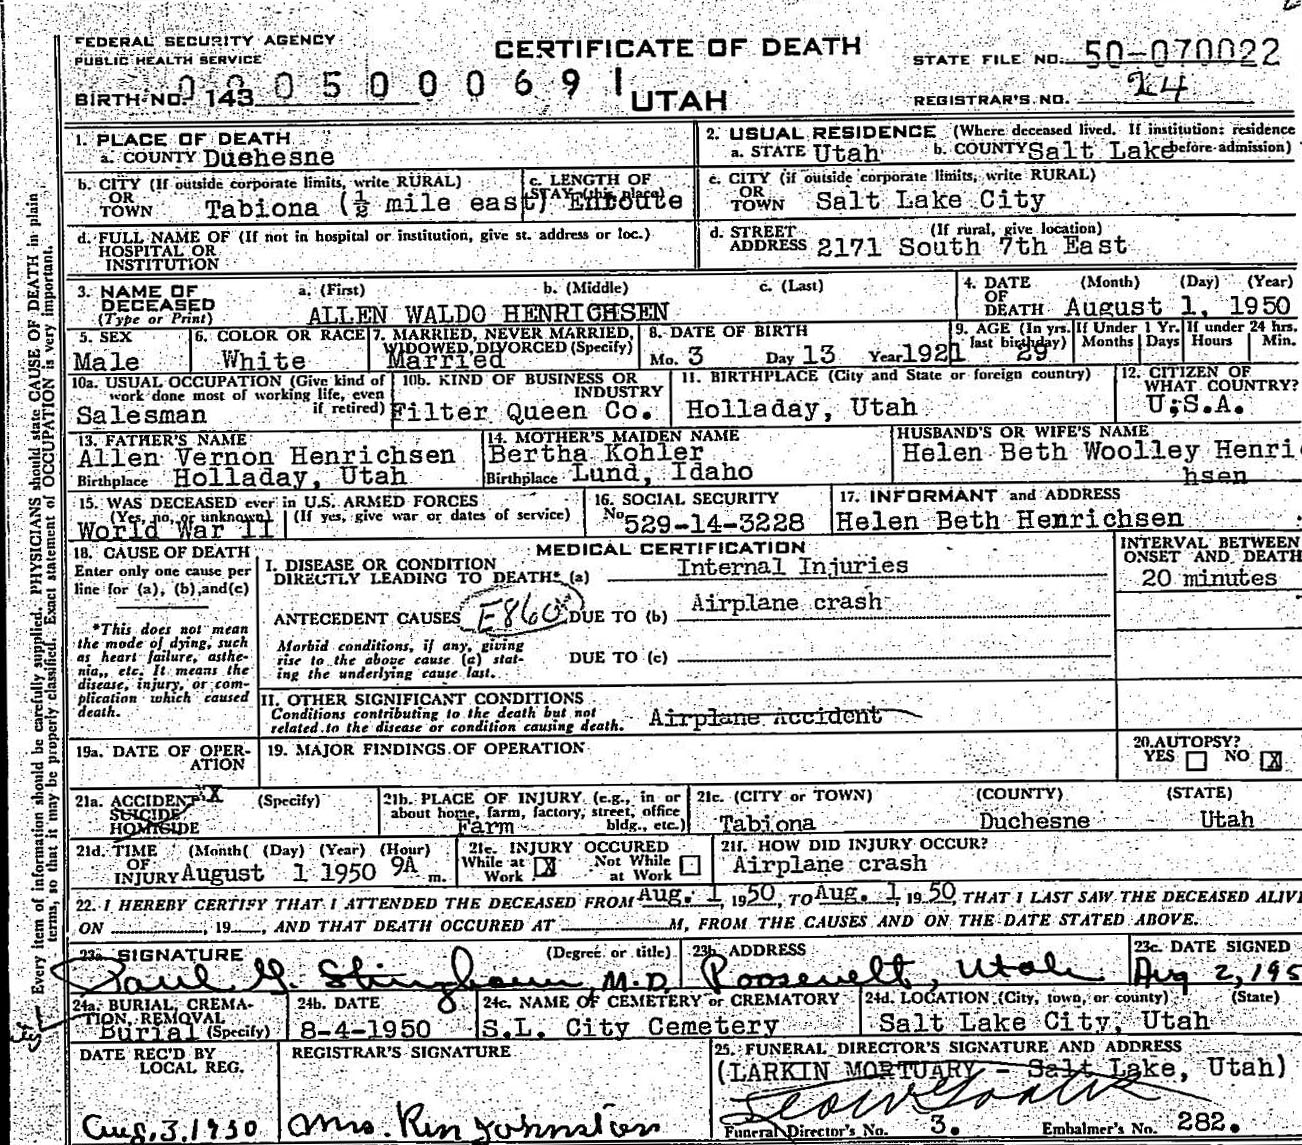 FEDERAL SECURITY AGENCY
PUBLIC HEALTH SERVICE
CERTIFICATE OF DEATH
UTAH
STATE FILE NO. 50-070022
BIRTH NO. 143 00050000691
REGISTRAR'S NO. 24
1. PLACE OF DEATH
a. COUNTY Duchesne
2. USUAL RESIDENCE (Where deceased lived. If institution: residence before admission)
a. STATE Utah b. COUNTY Salt Lake
b. CITY (If outside corporate limits, write RURAL)
OR
TOWN Tabiona (½ mile east)
c. LENGTH OF
STAY (this place) Enroute
c. CITY (if outside corporate limits, write RURAL)
OR
TOWN Salt Lake City
d. FULL NAME OF (If not in hospital or institution, give st. address or loc.)
HOSPITAL OR
INSTITUTION
d. STREET (If rural, give location)
ADDRESS 2171 South 7th East
3. NAME OF a. (First) b. (Middle) c. (Last)
DECEASED
(Type or Print) ALLEN WALDO HENRICHSEN
4. DATE (Month) (Day) (Year)
OF
DEATH August 1, 1950
5. SEX
Male
6. COLOR OR RACE
White
7. MARRIED, NEVER MARRIED,
WIDOWED, DIVORCED (Specify)
Married
8. DATE OF BIRTH
Mo. 3 Day 13 Year 1921
9. AGE (In yrs. last birthday) 29
If Under 1 Yr. Months Days
If under 24 hrs. Hours Min.
10a. USUAL OCCUPATION (Give kind of
work done most of working life, even
if retired)
Salesman
10b. KIND OF BUSINESS OR
INDUSTRY
Filter Queen Co.
11. BIRTHPLACE (City and State or foreign country)
Holladay, Utah
12. CITIZEN OF
WHAT COUNTRY?
U.S.A.
13. FATHER'S NAME
Allen Vernon Henrichsen
Birthplace Holladay, Utah
14. MOTHER'S MAIDEN NAME
Bertha Kohler
Birthplace Lund, Idaho
HUSBAND'S OR WIFE'S NAME
Helen Beth Woolley Henri
hsen
15. WAS DECEASED ever in U.S. ARMED FORCES
(Yes, no, or unknown) (If yes, give war or dates of service)
World War II
16. SOCIAL SECURITY
No 529-14-3228
17. INFORMANT and ADDRESS
Helen Beth Henrichsen
18. CAUSE OF DEATH
Enter only one cause per
line for (a), (b), and (c)
*This does not mean
the mode of dying, such
as heart failure, asthe-
nia, etc. It means the
disease, injury, or com-
plication which caused
death.
MEDICAL CERTIFICATION
I. DISEASE OR CONDITION
DIRECTLY LEADING TO DEATH* (a) Internal Injuries
ANTECEDENT CAUSES E860 DUE TO (b) Airplane crash
Morbid conditions, if any, giving
rise to the above cause (a) stat-
ing the underlying cause last.
DUE TO (c)
II. OTHER SIGNIFICANT CONDITIONS
Conditions contributing to the death but not
related to the disease or condition causing death.
Airplane Accident
INTERVAL BETWEEN
ONSET AND DEATH
20 minutes
19a. DATE OF OPER-
ATION
19. MAJOR FINDINGS OF OPERATION
20. AUTOPSY?
YES NO X
21a. ACCIDENT X (Specify)
SUICIDE
HOMICIDE
21b. PLACE OF INJURY (e.g., in or
about home, farm, factory, street, office
bldg., etc.)
Farm
21c. (CITY or TOWN) (COUNTY) (STATE)
Tabiona Duchesne Utah
21d. TIME (Month( (Day) (Year) (Hour)
OF
INJURY August 1 1950 9A m.
21e. INJURY OCCURED
While at Work X Not While at Work
21f. HOW DID INJURY OCCUR?
Airplane crash
22. I HEREBY CERTIFY THAT I ATTENDED THE DECEASED FROM Aug. 1, 1950, TO Aug. 1, 1950, THAT I LAST SAW THE DECEASED ALIVE
ON , 19 , AND THAT DEATH OCCURED AT M, FROM THE CAUSES AND ON THE DATE STATED ABOVE.
23a. SIGNATURE (Degree or title)
Paul G. Stringham, M.D.
23b. ADDRESS
Roosevelt, Utah
23c. DATE SIGNED
Aug 2, 195
24a. BURIAL, CREMA-
TION, REMOVAL
Burial (Specify)
24b. DATE
8-4-1950
24c. NAME OF CEMETERY or CREMATORY
S.L. City Cemetery
24d. LOCATION (City, town, or county) (State)
Salt Lake City, Utah
DATE REC'D BY
LOCAL REG.
Aug. 3, 1950
REGISTRAR'S SIGNATURE
Mrs. Ren Johnston
25. FUNERAL DIRECTOR'S SIGNATURE AND ADDRESS
(LARKIN MORTUARY - Salt Lake, Utah)
Funeral Director's No. 3. Embalmer's No. 282.
Every item of information should be carefully supplied. PHYSICIANS should state CAUSE OF DEATH in plain
terms, so that it may be properly classified. Exact statement of OCCUPATION is very important.